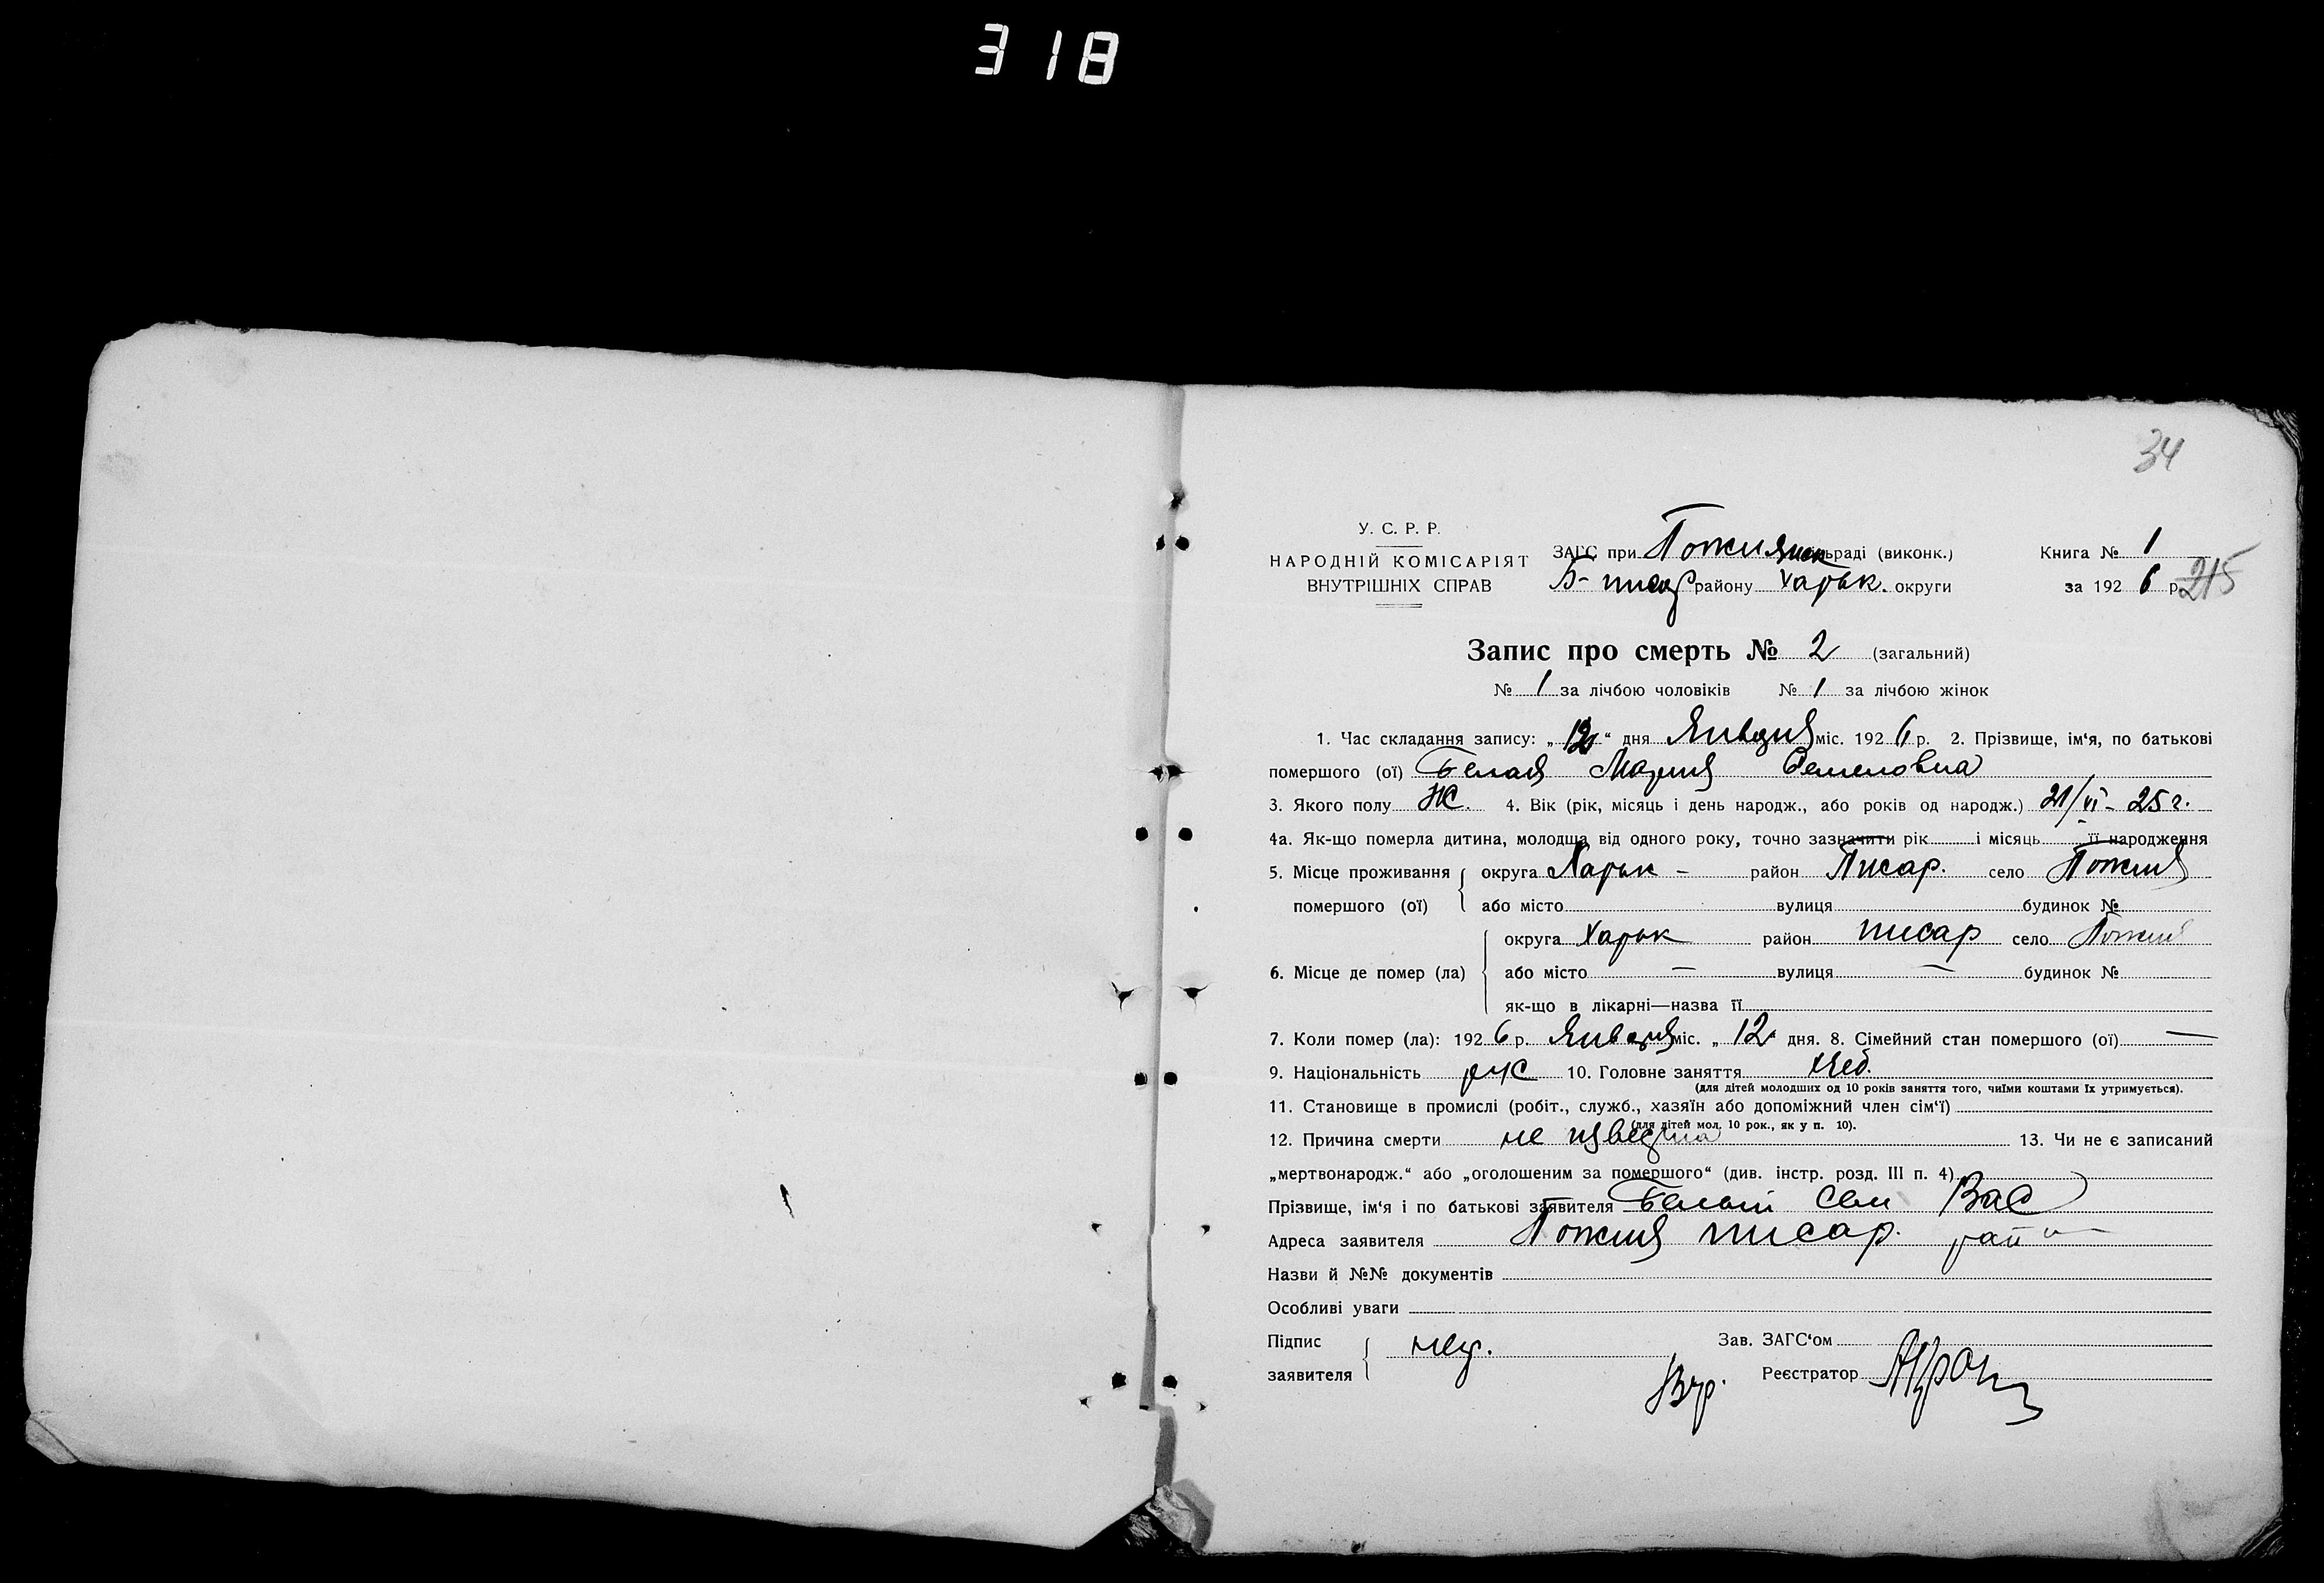 318
34
У. С. Р. Р.
НАРОДНІЙ КОМІСАРІЯТ
ВНУТРІШНІХ СПРАВ
ЗАГС при раді (виконк.)
Б- писар району Харьк. округи
Книга № 1
за 1926 р.
215
Запис про смерть № 2 (загальний)
№ 1 за лічбою чоловіків № 1 за лічбою жінок
1. Час складання запису: „ “ дня Января міс. 1926 р. 2. Прізвище, ім‘я, по батькові
помершого (ої) Белая Мария Семеновна
3. Якого полу Ж. 4. Вік (рік, місяць і день народж., або років од народж.) 21/VI - 25 г.
4а. Як-що померла дитина, молодща від одного року, точно зазначити рік і місяць її народження
5. Місце проживання округа Харьк - район Писар. село Пожня
помершого (ої) або місто вулиця будинок №
округа Харьк район писар село Пожня
6. Місце де помер (ла) або місто — вулиця — будинок №
як-що в лікарні—назва її
7. Коли помер (ла): 1926 р. Января міс. „12“ дня. 8. Сімейний стан помершого (ої) —
9. Національність рус 10. Головне заняття хлеб.
(для дітей молодших од 10 років заняття того, чиїми коштами їх утримується).
11. Становище в промислі (робіт., служб., хазяїн або допоміжний член сім‘ї)
(для дітей мол. 10 рок., як у п. 10).
12. Причина смерти не 13. Чи не є записаний
„мертвонародж.“ або „оголошеним за помершого“ (див. інстр. розд. III п. 4)
Прізвище, ім‘я і по батькові заявителя Белый Сем Вас
Адреса заявителя Пожня писар. рай
Назви й №№ документів
Особливі уваги
Підпис
заявителя
Зав. ЗАГС‘ом
Реєстратор